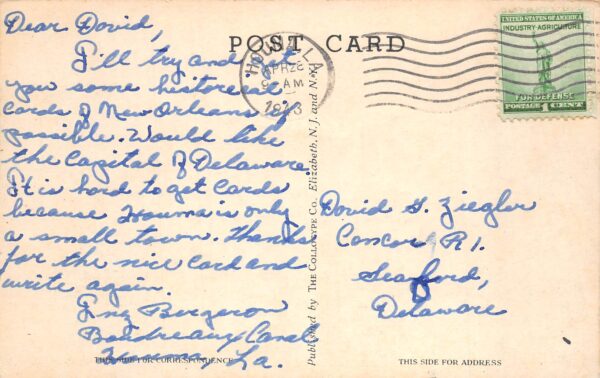 Dear David,
I'll try and get
you some historical
cards of New Orleans if
possible. Would like
the Capital of Delaware.
It is hard to get cards
because Houma is only
a small town. Thanks
for the nice card and
write again.
Inez Bergeron
Boudreaux Canal
Houma, La.
THIS SIDE FOR CORRESPONDENCE
POST CARD
HOUMA, LA
APR 26
9 AM
1943
UNITED STATES OF AMERICA
INDUSTRY-AGRICULTURE
FOR DEFENSE
POSTAGE 1 CENT
Published by THE COLLOTYPE CO. Elizabeth, N. J. and N.Y.
David G. Ziegler
R 1.
Seaford,
Delaware
THIS SIDE FOR ADDRESS